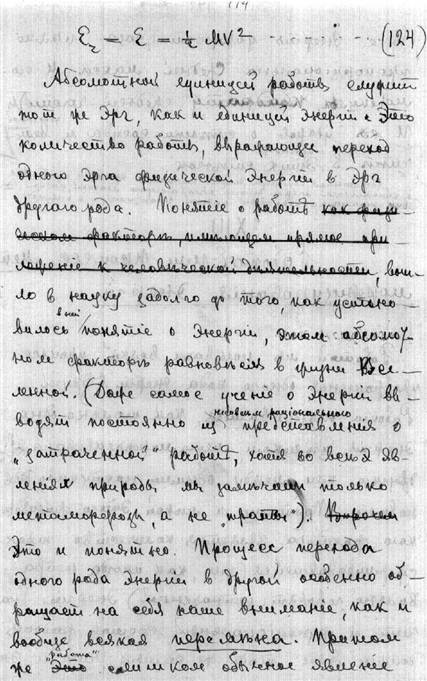 114
ℰ₂ − ℰ = ½ MV² . . . . . (124)
Абсолютной единицей работы служит
тот же Эрг, как и единицей Энергіи. Это
количество работы, выражающее переход
одного Эрга физической Энергіи в Эрг
другаго рода. Понятіе о работѣ как физи-
ческом факторѣ, имѣющем прямое при-
ложеніе к человѣческой дѣятельности, вош-
ло в науку задолго до того, как устано-
вилось в ней понятіе о Энергіи, этом абсолют-
ном факторѣ равновѣсія в жизни Все-
ленной. (Даже самое ученіе о Энергіи вы-
водят постоянно из не совсѣм раціональнаго представленія о
„затраченной" работѣ, хотя во всѣх яв-
леніях природы мы замѣчаем только
метаморфозы, а не „траты"). Впрочем
Это и понятно. Процесс перехода
одного рода Энергіи в другой особенно об-
ращает на себя наше вниманіе, как и
вообще всякая перемѣна. Притом
же "работа" Это слишком обычное явленіе